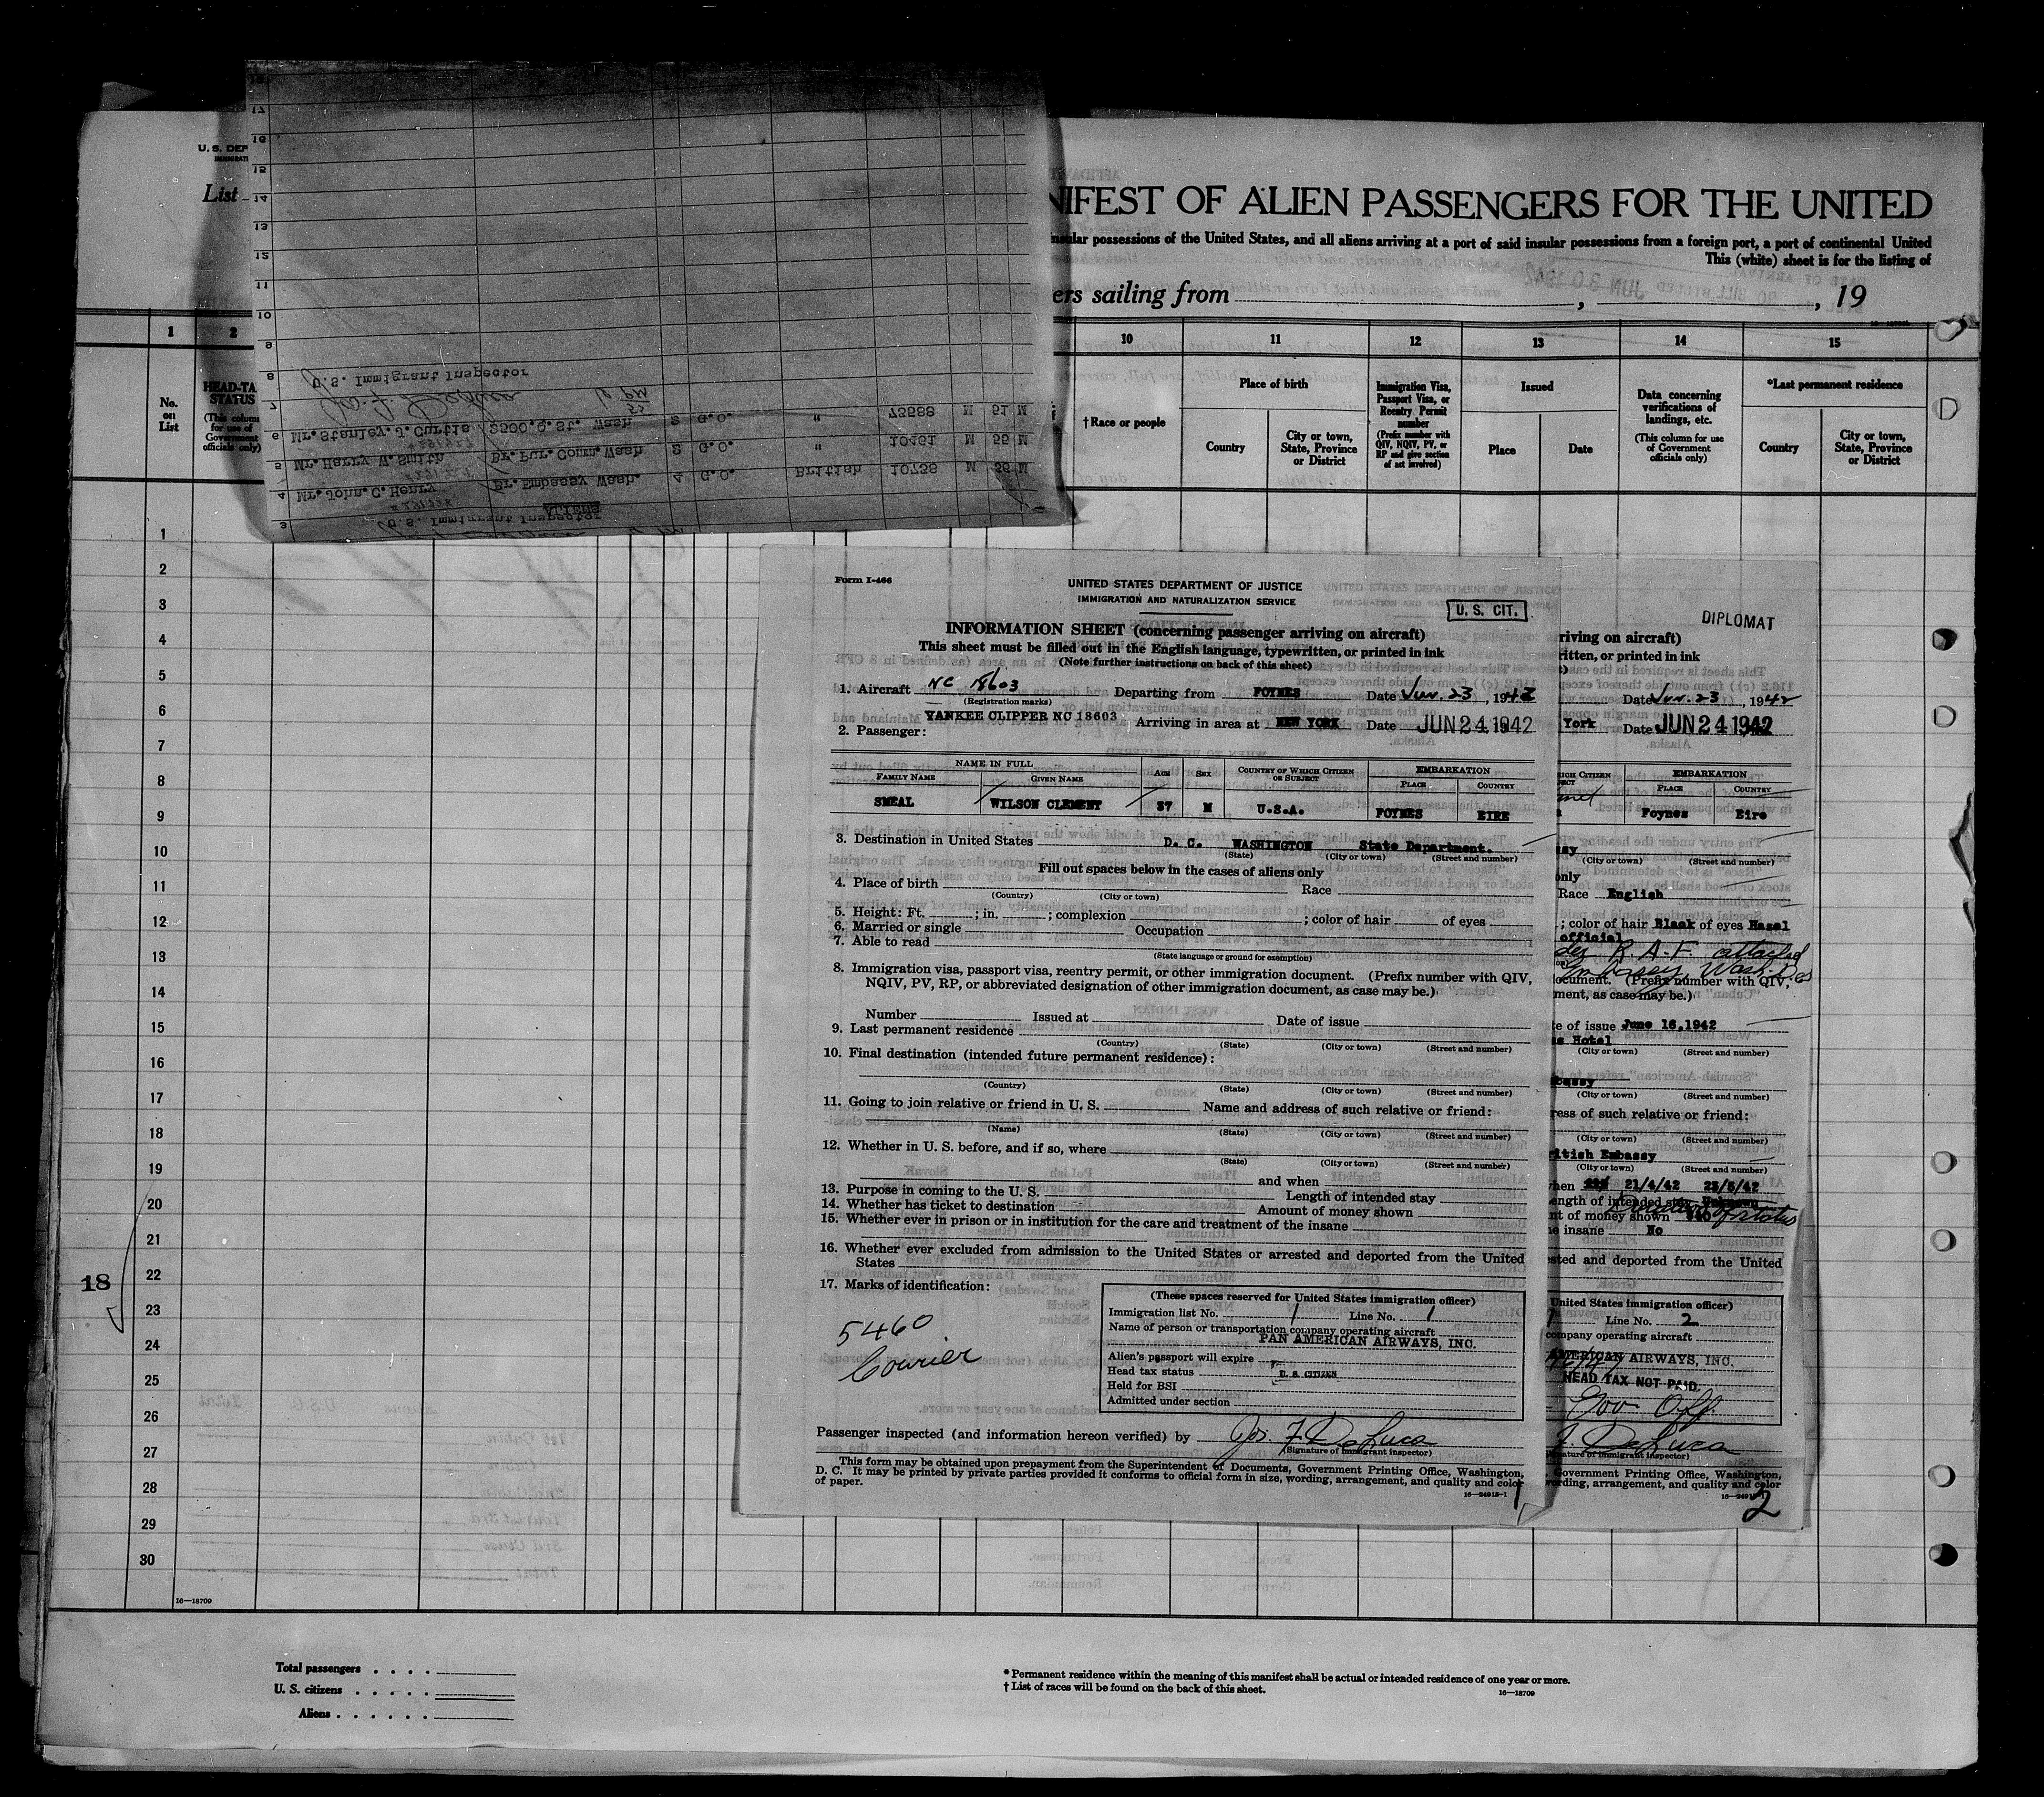 U. S. DEP
IMMIGRATI
List
NIFEST OF ALIEN PASSENGERS FOR THE UNITED
insular possessions of the United States, and all aliens arriving at a port of said insular possessions from a foreign port, a port of continental United
This (white) sheet is for the listing of
ers sailing from , , 19
18
17
16
15
14
13
12
11
10
9
8
U.S. Immigrant Inspector
7
6 Mr. Stanley. J. Curtis 2500.Q. St. Wash 2 G.O. " 73588 M 51 M
5 Mr. Harry W. Smith Br. Pur. Comm. Wash 2 G.O. " 10461 M 55 M
4 Mr. John. C. Henry Br. Embassy Wash. 4 G.O. British 10739 M 36 M
ALIENS
3 U.S. Immigrant Inspector
1 2 10 11 12 13 14 15
No. on List
HEAD-TA
STATUS
(This column
for use of
Government
officials only)
†Race or people
Place of birth
Country
City or town, State, Province or District
Immigration Visa, Passport Visa, or Reentry Permit number
(Prefix number with QIV, NQIV, PV, or RP and give section of act involved)
Issued
Place
Date
Data concerning verifications of landings, etc.
(This column for use of Government officials only)
*Last permanent residence
Country
City or town, State, Province or District
1
2
3
4
5
6
7
8
9
10
11
12
13
14
15
16
17
18
19
20
21
22
23
24
25
26
27
28
29
30
18
16—18709
Form I-466
UNITED STATES DEPARTMENT OF JUSTICE
IMMIGRATION AND NATURALIZATION SERVICE
U. S. CIT.
INFORMATION SHEET (concerning passenger arriving on aircraft)
This sheet must be filled out in the English language, typewritten, or printed in ink
(Note further instructions on back of this sheet)
1. Aircraft NC 18603 Departing from FOYNES Date Jun. 23, 1942
(Registration marks)
YANKEE CLIPPER NC 18603 Arriving in area at NEW YORK Date JUN 24 1942
2. Passenger:
NAME IN FULL
FAMILY NAME GIVEN NAME AGE SEX COUNTRY OF WHICH CITIZEN OR SUBJECT EMBARKATION
PLACE COUNTRY
SMEAL WILSON CLEMENT 37 M U.S.A. FOYNES EIRE
3. Destination in United States D. C. WASHINGTON State Department.
(State) (City or town) (Street and number)
Fill out spaces below in the cases of aliens only
4. Place of birth Race
(Country) (City or town)
5. Height: Ft. ; in. ; complexion ; color of hair of eyes
6. Married or single Occupation
7. Able to read
(State language or ground for exemption)
8. Immigration visa, passport visa, reentry permit, or other immigration document. (Prefix number with QIV,
NQIV, PV, RP, or abbreviated designation of other immigration document, as case may be.)
Number Issued at Date of issue
9. Last permanent residence
(Country) (State) (City or town) (Street and number)
10. Final destination (intended future permanent residence):
(Country) (State) (City or town) (Street and number)
11. Going to join relative or friend in U. S. Name and address of such relative or friend:
(Name) (State) (City or town) (Street and number)
12. Whether in U. S. before, and if so, where
(State) (City or town) (Street and number)
and when
13. Purpose in coming to the U. S. Length of intended stay
14. Whether has ticket to destination Amount of money shown
15. Whether ever in prison or in institution for the care and treatment of the insane
16. Whether ever excluded from admission to the United States or arrested and deported from the United
States
17. Marks of identification:
5460
Courier
(These spaces reserved for United States immigration officer)
Immigration list No. 1 Line No. 1
Name of person or transportation company operating aircraft
PAN AMERICAN AIRWAYS, INC.
Alien's passport will expire
Head tax status U. S. CITIZEN
Held for BSI
Admitted under section
Passenger inspected (and information hereon verified) by Jos. F. DeLuca
(Signature of immigrant inspector)
This form may be obtained upon prepayment from the Superintendent of Documents, Government Printing Office, Washington,
D. C. It may be printed by private parties provided it conforms to official form in size, wording, arrangement, and quality and color
of paper.
16—24915-1
1
DIPLOMAT
riving on aircraft)
ritten, or printed in ink
Date Jun. 23, 1942
York Date JUN 24 1942
HICH CITIZEN EMBARKATION
PLACE COUNTRY
Foynes Eire
(City or town) (Street and number)
only
Race English
; color of hair Black of eyes Hazel
official
R.A.F. attached
Embassy, Wash.
ocument. (Prefix number with QIV,
ment, as case may be.)
te of issue June 16,1942
Hotel
(City or town) (Street and number)
bassy
(City or town) (Street and number)
ress of such relative or friend:
(City or town) (Street and number)
itish Embassy
(City or town) (Street and number)
hen 21/4/42 23/5/42
ength of intended stay Unknown
Duration of status
nt of money shown
e insane No
sted and deported from the United
United States immigration officer)
Line No. 2
company operating aircraft
AMERICAN AIRWAYS, INC.
HEAD TAX NOT PAID
Gov Off.
DeLuca
Government Printing Office, Washington,
wording, arrangement, and quality and color
2
Total passengers
U. S. citizens
Aliens
* Permanent residence within the meaning of this manifest shall be actual or intended residence of one year or more.
† List of races will be found on the back of this sheet.
16—18709